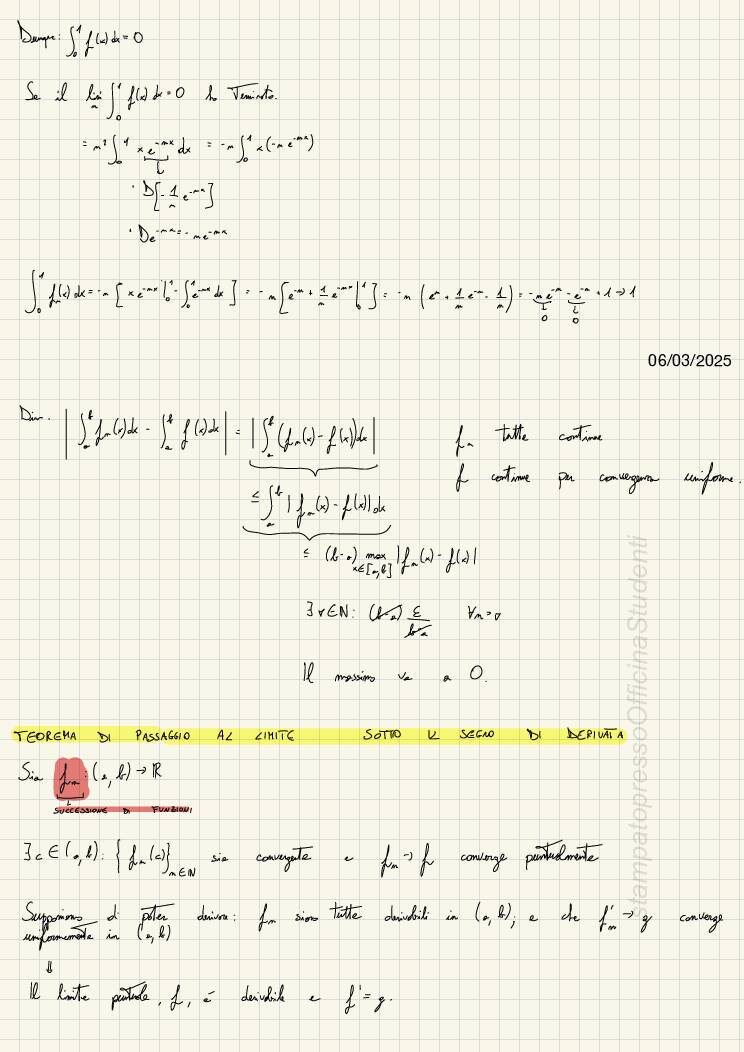 Dunque: ∫₀¹ f(x) dx = 0
Se il lim_n ∫₀¹ f(x) dx = 0 ho terminato.
= n² ∫₀¹ x e^{-nx} dx = -n ∫₀¹ x (-n e^{-nx})
· D[-1/n e^{-nx}]
· D e^{-nx} = -n e^{-nx}
∫₀¹ f_n(x) dx = -n [x e^{-nx} |₀¹ - ∫₀¹ e^{-nx} dx] = -n [e^{-n} + 1/n e^{-nx} |₀¹] = -n (e^{n} + 1/n e^{-n} - 1/n) = -n e^{-n} - e^{-n} + 1 → 1
0 0
06/03/2025
Dim. |∫_a^b f_n(x) dx - ∫_a^b f(x) dx| = |∫_a^b (f_n(x) - f(x)) dx| f_n tutte continue
f continue per convergenza uniforme.
≤ ∫_a^b |f_n(x) - f(x)| dx
≤ (b-a) max_{x∈[a,b]} |f_n(x) - f(x)|
∃ ν ∈ N: (b-a) ε/(b-a) ∀n > ν
Il massimo va a 0.
TEOREMA DI PASSAGGIO AL LIMITE SOTTO IL SEGNO DI DERIVATA
Sia f_n: (a, b) → ℝ
SUCCESSIONE DI FUNZIONI
∃ c ∈ (a, b): {f_n(c)}_{n∈ℕ} sia convergente e f_n → f converge puntualmente
Supponiamo di poter derivare: f_n siano tutte derivabili in (a, b); e che f'_n → g converge
uniformemente in (a, b)
⇓
Il limite puntuale, f, è derivabile e f' = g.
stampatopressoOfficinaStudenti